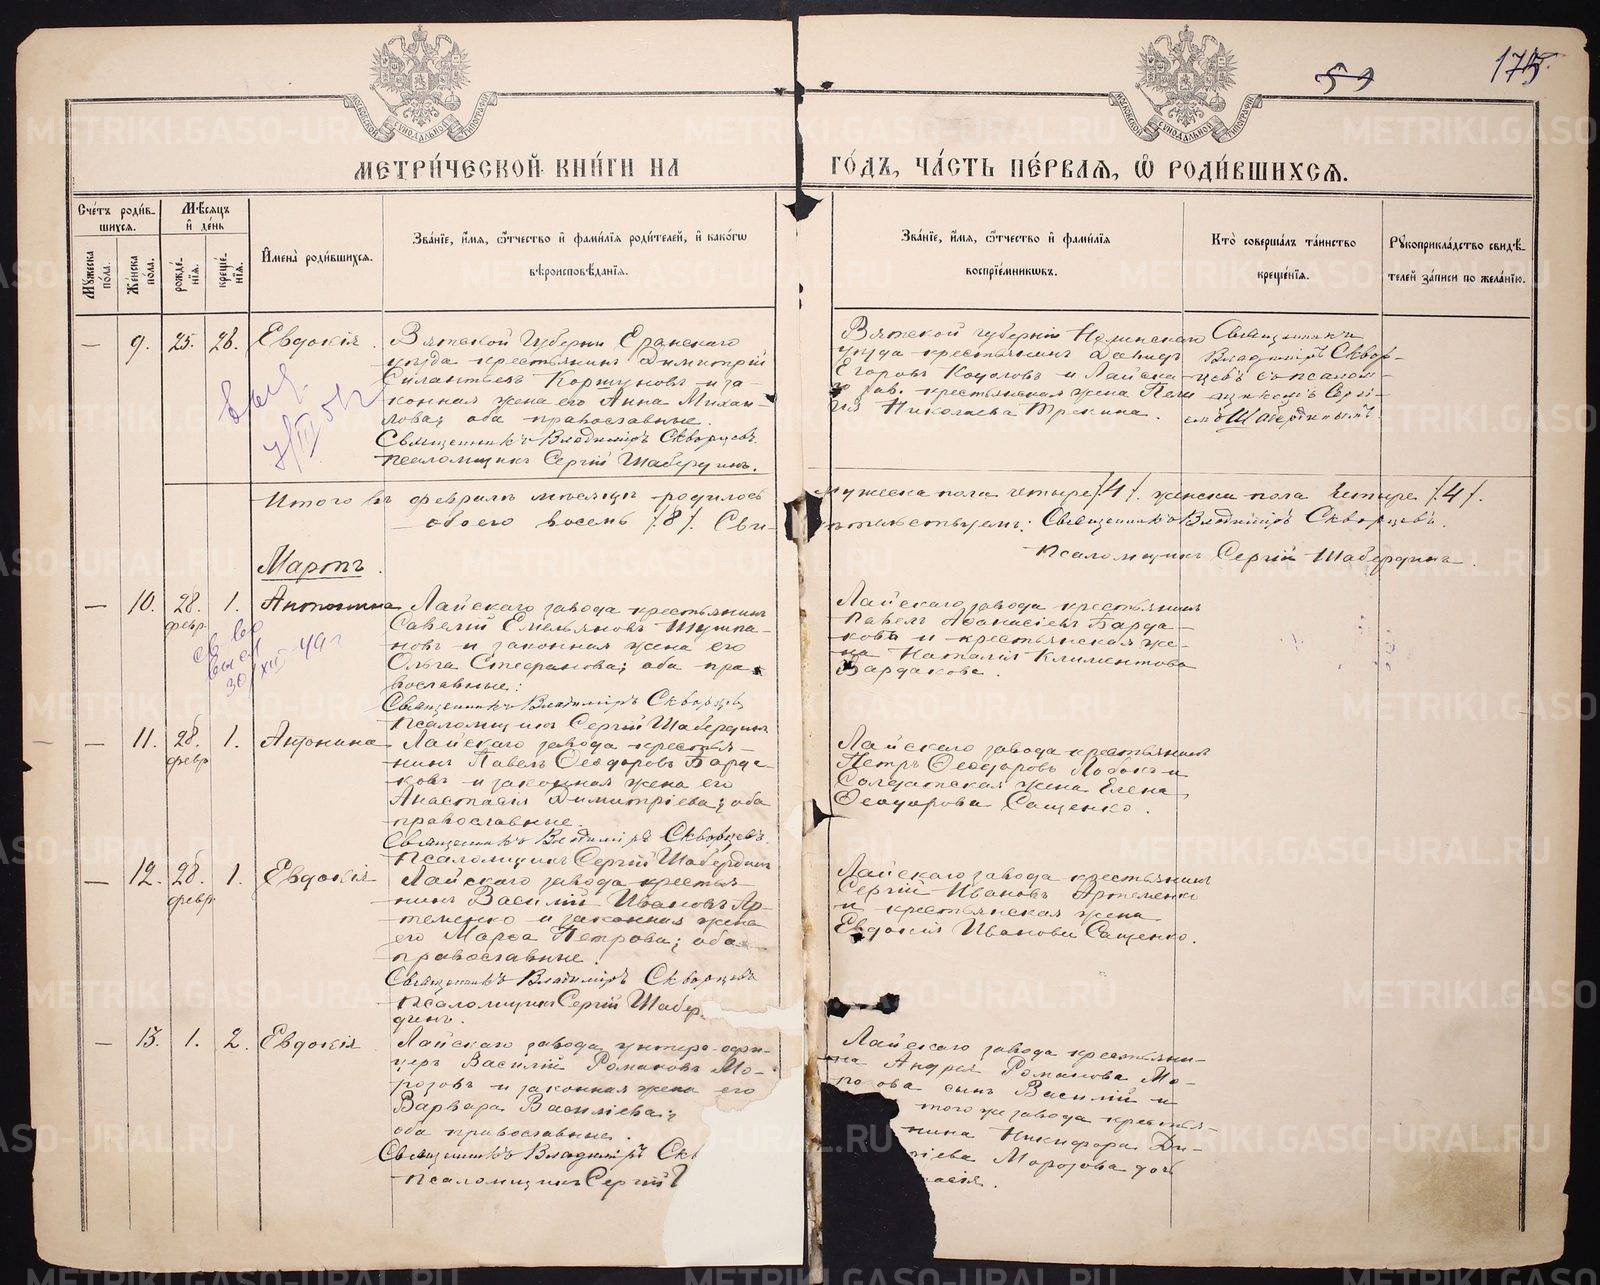 59
175.
МОСКОВСКОЙ СѴНОДАЛЬНОЙ ТИПОГРАФІИ
МОСКОВСКОЙ СѴНОДАЛЬНОЙ ТИПОГРАФІИ
МЕТРИ́ЧЕСКОЙ КНИ́ГИ НА ГО́ДЪ, ЧА́СТЬ ПЕ́РВАЯ, Ѿ РОДИ́ВШИХСЯ.
Сче́тъ роди́в-
шихся.
Мѣ́сяцъ
и҆ де́нь
Мꙋ́жеска по́ла.
Же́нска по́ла.
рожде́-
нїя.
креще́-
нїя.
И҆мена̀ роди́вшихся.
Зва́нїе, и҆́мя, ѻ҆́тчество и҆ фами́лїя роди́телей, и҆ како́гѡ
вѣроисповѣ́данїя.
Зва́нїе, и҆́мя, ѻ҆́тчество и҆ фами́лїя
воспрїе́мникѡвъ.
Кто̀ соверша́лъ та́инство
креще́нїя.
Рꙋкоприкла́дство свидѣ́-
телей за́писи по жела́нїю.
— 9. 25. 26. Евдокія.
Вятской Губерніи Еранскаго
уѣзда крестьянинъ Димитрій
Силантьевъ Коршуновъ и за-
конная жена его Анна Михаи-
лова; оба православные.
Священникъ Владиміръ Скворцовъ.
Псаломщикъ Сергій Шабердинъ.
Вятской губерніи
уѣзда крестьянинъ Давидъ
Егоровъ и Лайска-
го зав. крестьянская жена Пела-
гія Николаева
Священникъ
Владиміръ Сквор-
цовъ съ псалом-
щикомъ Сергі-
емъ Шабердинымъ
Итого въ февралѣ мѣсяцѣ родилось мужеска пола четыре /4/. женска пола четыре /4/.
обоего восемь /8/. Сви-
Священникъ Владиміръ Скворцовъ.
Псаломщикъ Сергій Шабердинъ.
Мартъ.
— 10. 28. 1. Антонина
февр.
Лайскаго завода крестьянинъ
Савелій Емельяновъ
и законная жена его
Ольга Стефанова; оба пра-
вославные:
Священникъ Владиміръ Скворцовъ
Псаломщикъ Сергій Шабердинъ
Лайскаго завода крестьянинъ
Павелъ Аѳанасіевъ Барда-
ковъ и крестьянская же-
на Наталія Климентова
Бардакова.
30/XII 49 г
— 11. 28. 1. Антонина
февр.
Лайскаго завода крестья-
нинъ Павелъ Ѳеодоровъ Барда-
ковъ и законная жена его
Анастасія Димитріева; оба
православные.
Священникъ Владиміръ Скворцовъ.
Псаломщикъ Сергій Шабердинъ
Лайскаго завода крестьянинъ
Петръ Ѳеодоровъ и
Солдатская жена Елена
Ѳеодорова Сащенко.
— 12. 28. 1. Евдокія
февр.
Лайскаго завода крестья-
нинъ Василій Ивановъ Ар-
теменко и законная жена
его Марѳа Петрова; оба
православные.
Священникъ Владиміръ Скворцовъ
Псаломщикъ Сергій Шабер-
динъ.
Лайскаго завода крестьянинъ
Сергій Ивановъ Артеменко
и крестьянская жена
Евдокія Иванова Сащенко.
— 13. 1. 2. Евдокія
Лайскаго завода унтеръ-офи-
церъ Василій Романовъ Мо-
розовъ и законная жена его
Варвара Василіева;
оба православные.
Священникъ Владиміръ Скв
Псаломщикъ Сергій
Лайскаго завода крестьяни-
на Андрея Романова Мо-
розова сынъ Василій и
того же завода крестья-
нина Никифора Ди-
ріева Морозова дочь
асія.
METRIKI.GASO-URAL.RU